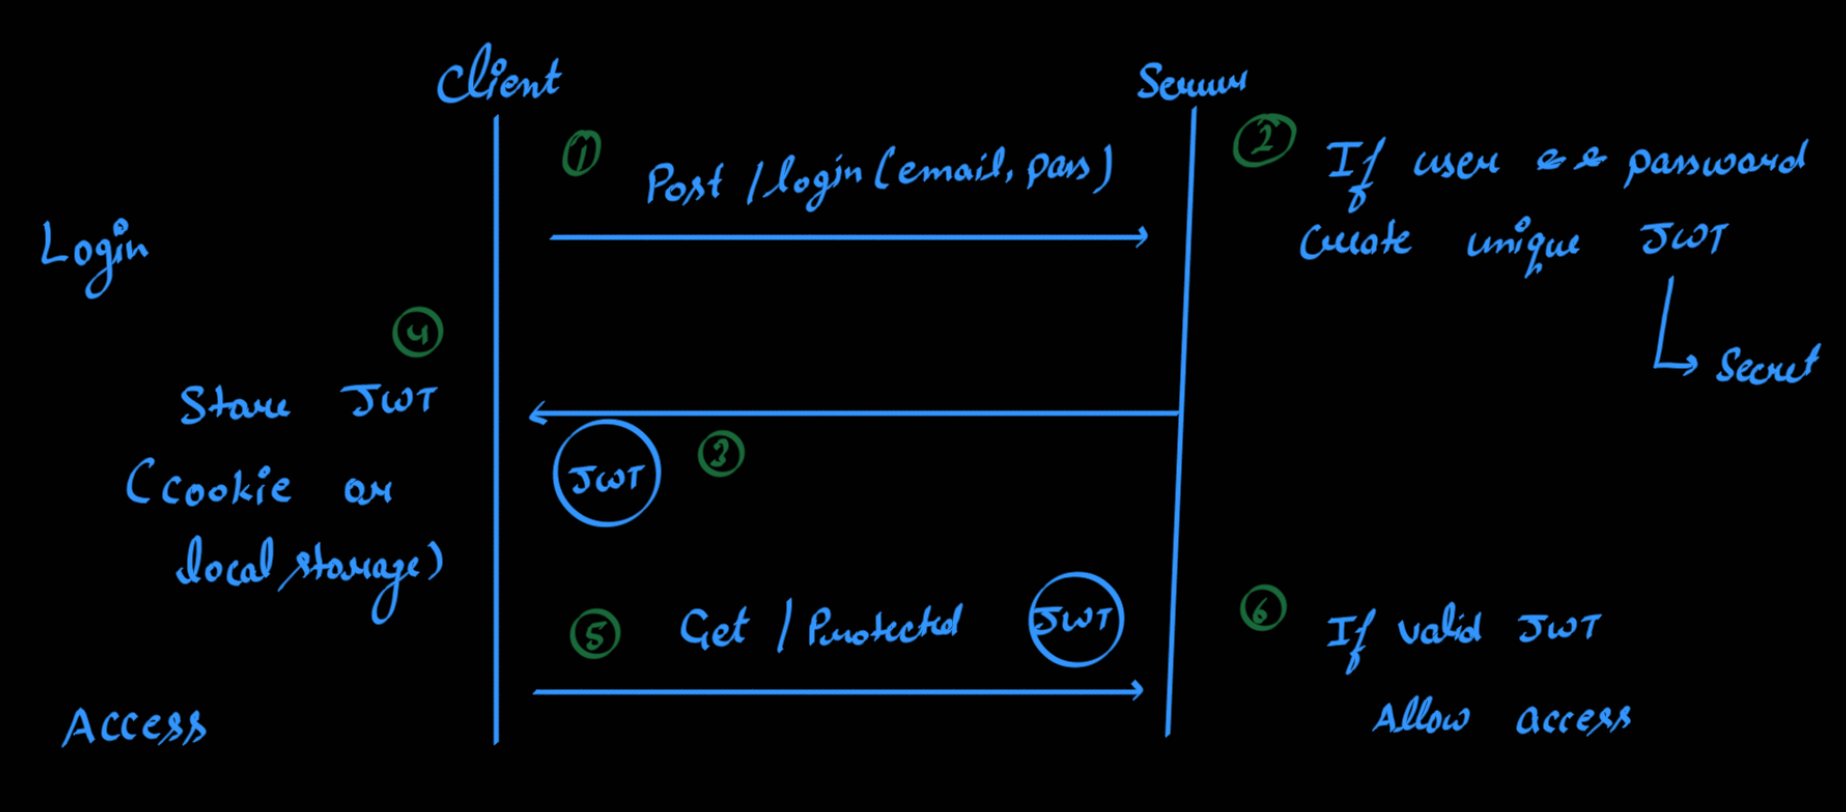 Client
Server
1
Post /login (email, pass)
2
If user && password
Create unique JWT
Secret
Login
4
Store JWT
(cookie or
local storage)
3
JWT
5
Get / Protected
JWT
6
If valid JWT
Allow access
Access